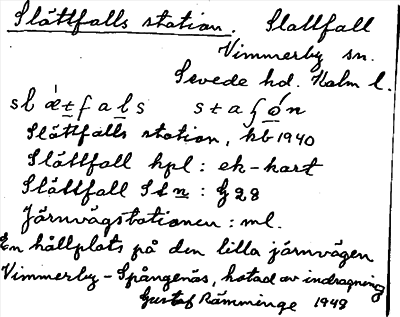 Slättfalls station. Slättfall
Vimmerby sn.
Sevede hd. Kalm l.
slǽtfals staʃón
Slättfalls station, hb 1940
Slättfall hpl: ek-kart
Slättfall Stn: G28
Järnvägstationen: ml.
Em hållplats på den lilla järnvägen
Vimmerby-Spångenäs, hotad av indragning
Gustaf Rämminge 1948